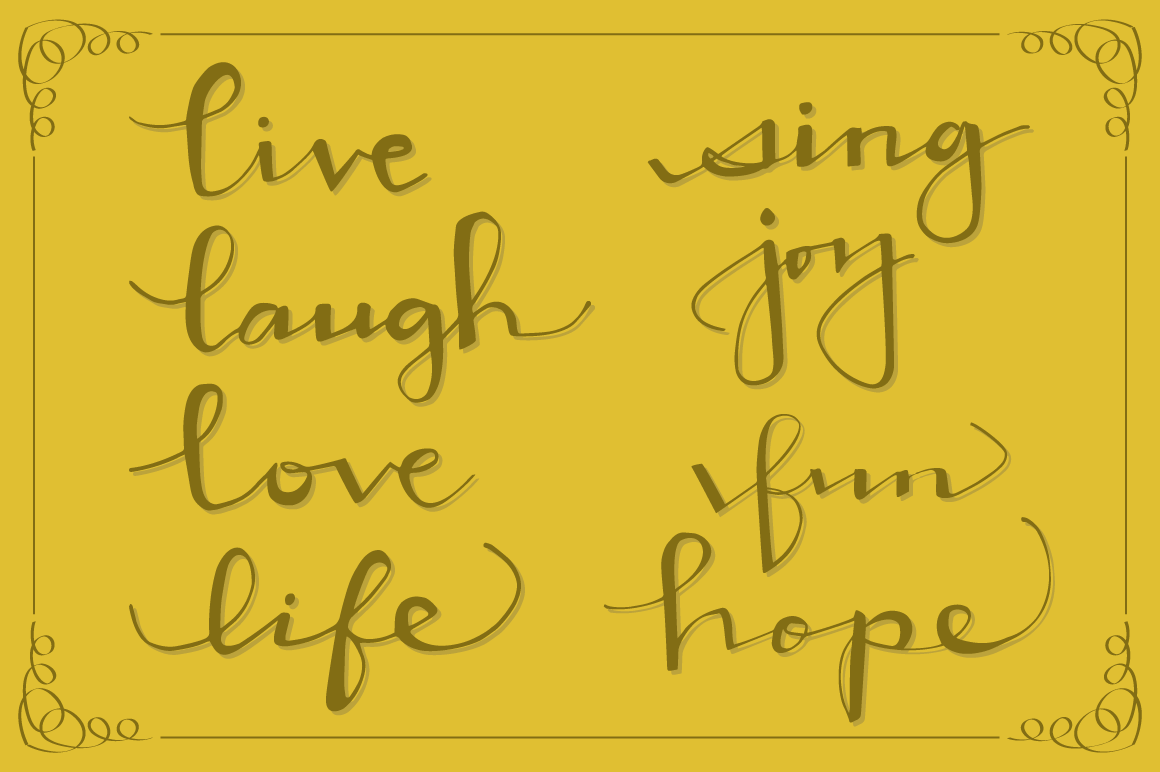 live
laugh
love
life
sing
joy
fun
hope